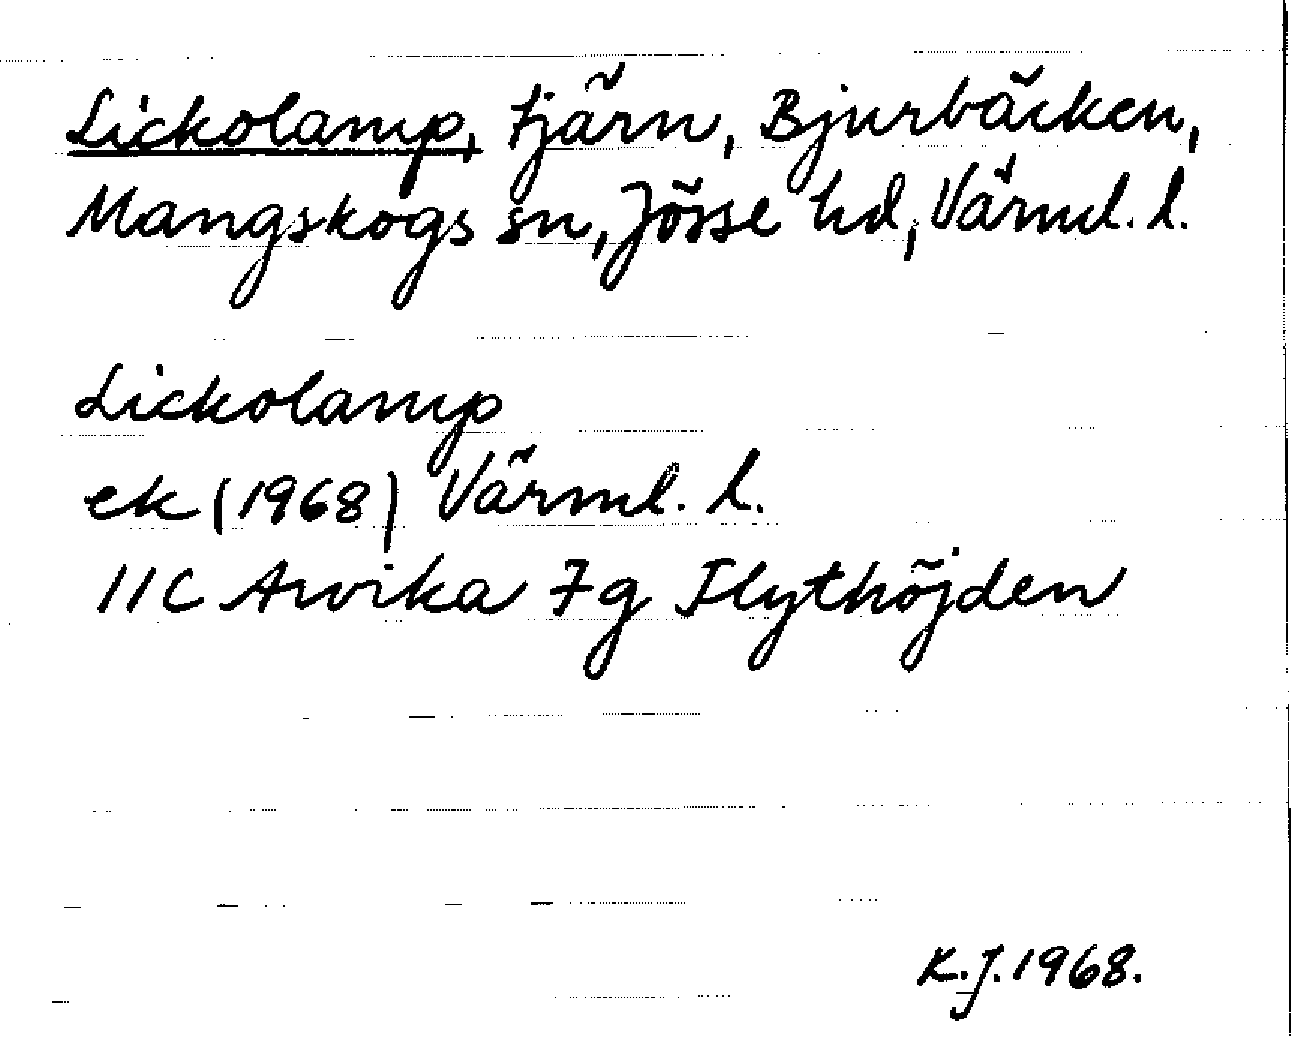 Lickolamp, tjärn, Bjurbäcken,
Mangskogs sn, Jösse hd, Värml. l.
Lickolamp
ek (1968) Värml. l.
11C Arvika 7g Flythöjden
K.J. 1968.